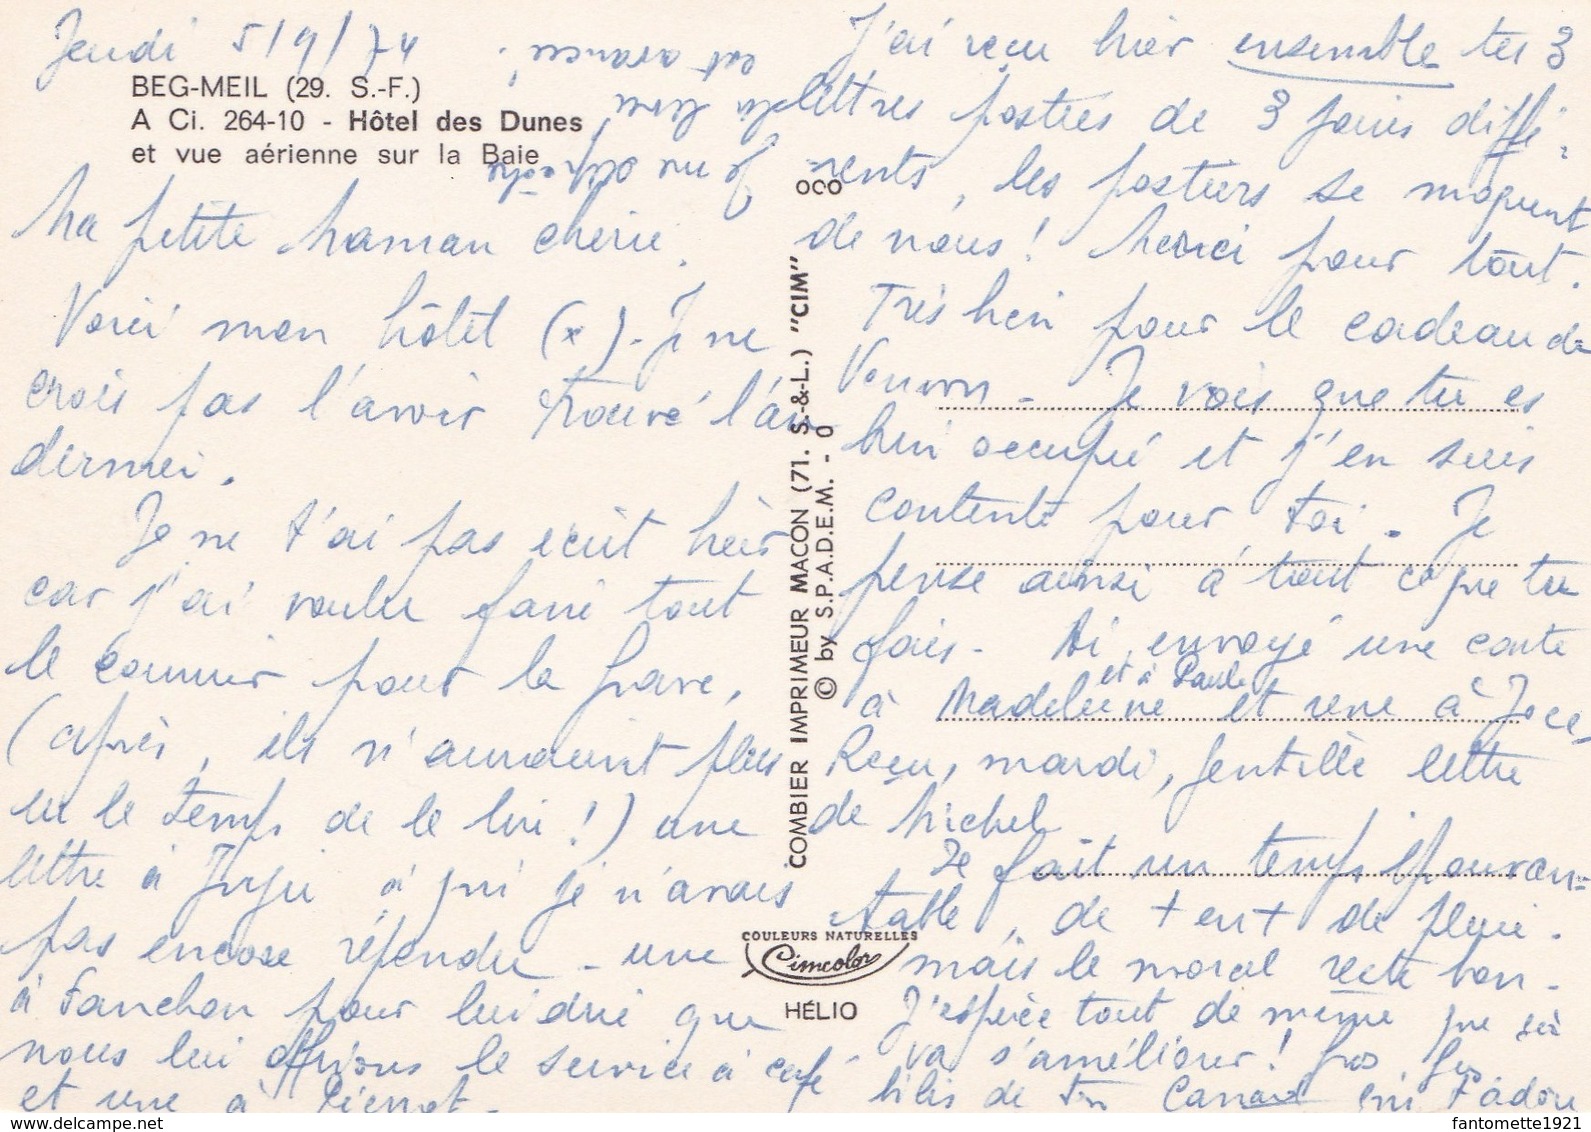 Jeudi 5/9/74
BEG-MEIL (29. S.-F.)
A Ci. 264-10 - Hôtel des Dunes
et vue aérienne sur la Baie
Ma petite Maman chérie,
Voici mon hôtel (x). Je ne
crois pas l'avoir trouvé l'an
dernier.
Je ne t'ai pas écrit hier
car j'ai voulu faire tout
le courrier pour la
(après, ils n'auraient plus
eu le temps de le lire !) une
lettre à à qui je n'avais
pas encore répondu - une
à Fanchon pour lui dire que
nous lui offrions le service à café
et une à Pierrot -
est avancée
la
Je m'
J'ai reçu hier ensemble tes 3
lettres postées de 3 jours diffé-
rents, les postiers se moquent
de nous ! Merci pour tout.
Très bien pour le cadeau de
Je vois que tu es
bien occupée et j'en suis
contente pour toi. Je
pense ainsi à tout ce que tu
fais - Ai envoyé une carte
et à Paule
à Madeleine et une à Joce,
Reçu, mardi, gentille lettre
de Michel
Il fait un temps épouvan-
table, de vent et de pluie.
Mais le moral reste bon -
J'espère tout de même que ça
va s'améliorer ! Gros gros
bibis de ton Canard qui t'adore
OCO
COMBIER IMPRIMEUR MACON (71. S.-&-L.) "CIM"
© by S.P.A.D.E.M. - 0
COULEURS NATURELLES
Cimcolor
HÉLIO
https://www.delcampe.net
fantomette1921